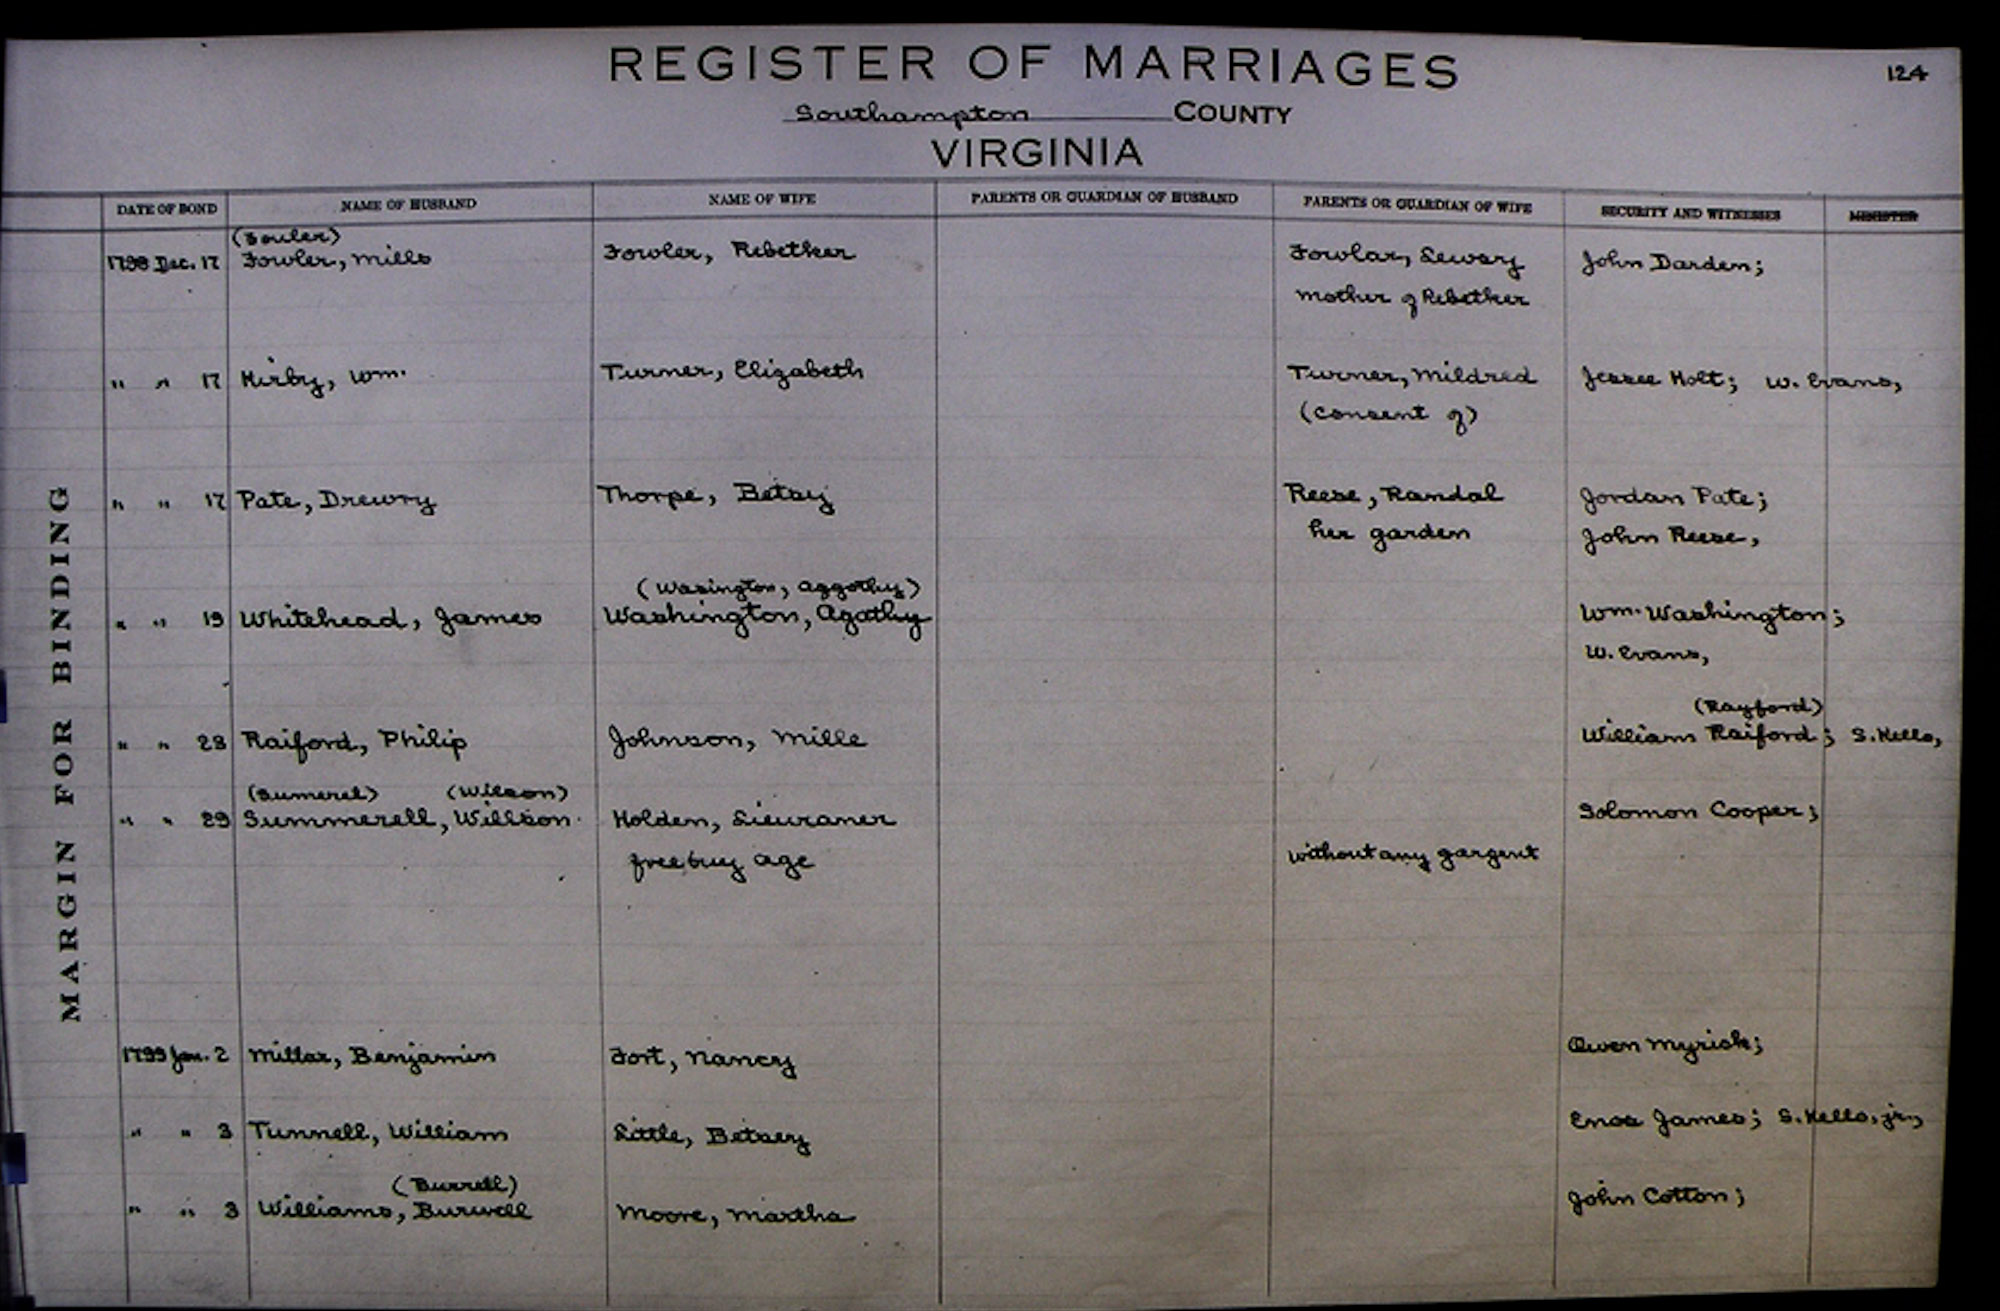 REGISTER OF MARRIAGES
124
Southampton COUNTY
VIRGINIA
DATE OF BOND NAME OF HUSBAND NAME OF WIFE PARENTS OR GUARDIAN OF HUSBAND PARENTS OR GUARDIAN OF WIFE SECURITY AND WITNESSES MINISTER
(Fouler)
1798 Dec. 17 Fowler, Mills Fowler, Rebetker Fowlar, Sewary John Darden;
mother of Rebetker
" " 17 Kirby, Wm. Turner, Elizabeth Turner, Mildred Jessee Holt; W. Evans,
(consent of)
" " 17 Pate, Drewry Thorpe, Betsy Reese, Randal Jordan Pate;
her garden John Reese,
(Wasington, Aggothy)
" " 19 Whitehead, James Washington, Agathy Wm. Washington;
W. Evans,
(Rayford)
" " 28 Raiford, Philip Johnson, Mille William Raiford; S. Kello,
(Sumerel) (Wilson)
" " 29 Summerell, Willson Holden, Sieuraner Solomon Cooper;
free buy age without any gargent
1799 Jan. 2 Millar, Benjamin Fort, Nancy Owen Myrick;
" " 3 Tunnell, William Little, Betsey Enos James; S. Kello, jr.,
(Burrell)
" " 3 Williams, Burwell Moore, Martha John Cotton;
MARGIN FOR BINDING